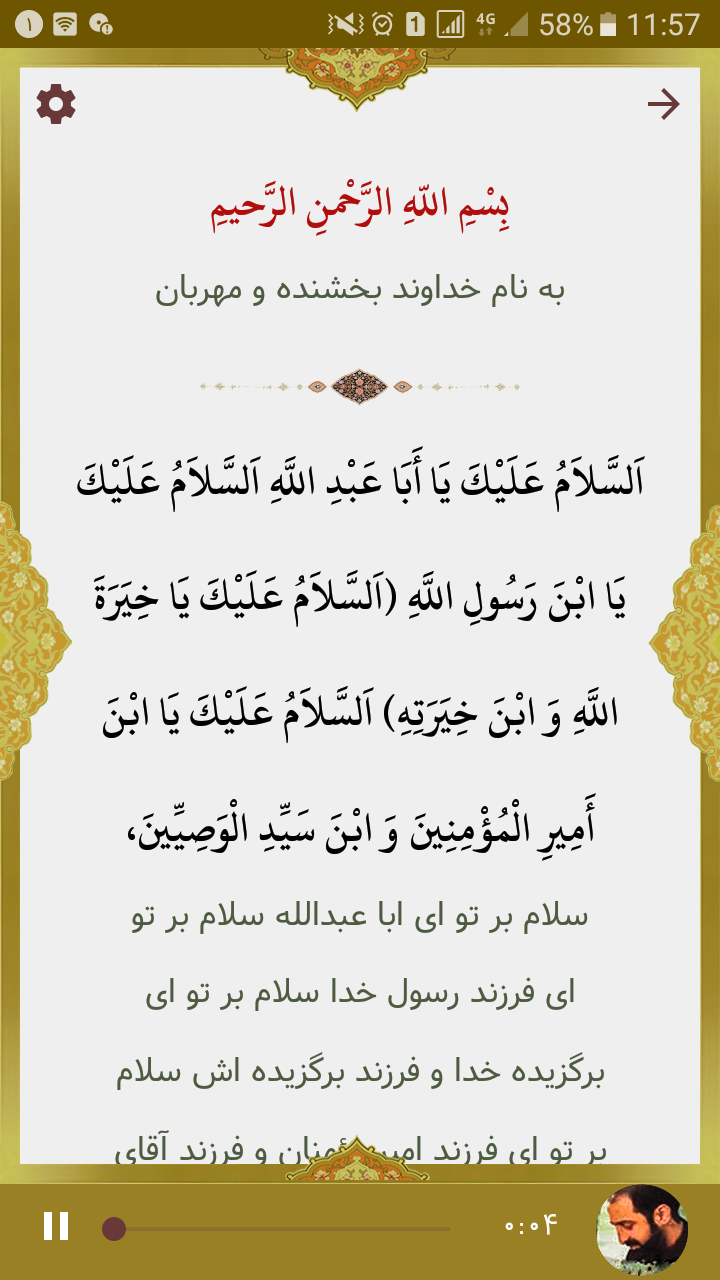 ۱ 1 4G 58% 11:57
بِسْمِ اللّهِ الرَّحْمنِ الرَّحيمِ
به نام خداوند بخشنده و مهربان
اَلسَّلاَمُ عَلَيْكَ يَا أَبَا عَبْدِ اللَّهِ اَلسَّلاَمُ عَلَيْكَ
يَا ابْنَ رَسُولِ اللَّهِ (اَلسَّلاَمُ عَلَيْكَ يَا خِيَرَةَ
اللَّهِ وَ ابْنَ خِيَرَتِهِ) اَلسَّلاَمُ عَلَيْكَ يَا ابْنَ
أَمِيرِ الْمُؤْمِنِينَ وَ ابْنَ سَيِّدِ الْوَصِيِّينَ،
سلام بر تو ای ابا عبدالله سلام بر تو
ای فرزند رسول خدا سلام بر تو ای
برگزیده خدا و فرزند برگزیده اش سلام
بر تو ای فرزند و فرزند آقای
۰:۰۴